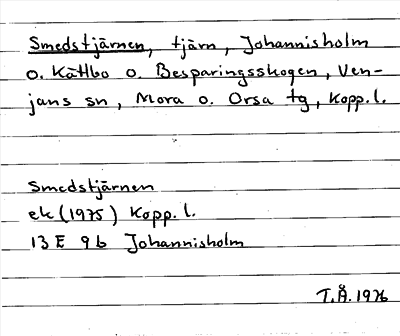 Smedstjärnen, tjärn, Johannisholm
o. Kättbo o. Besparingsskogen, Ven-
jans sn, Mora o. Orsa tg, Kopp. l.
Smedstjärnen
ek (1975) Kopp. l.
13 E 9b Johannisholm
T.Å. 1976